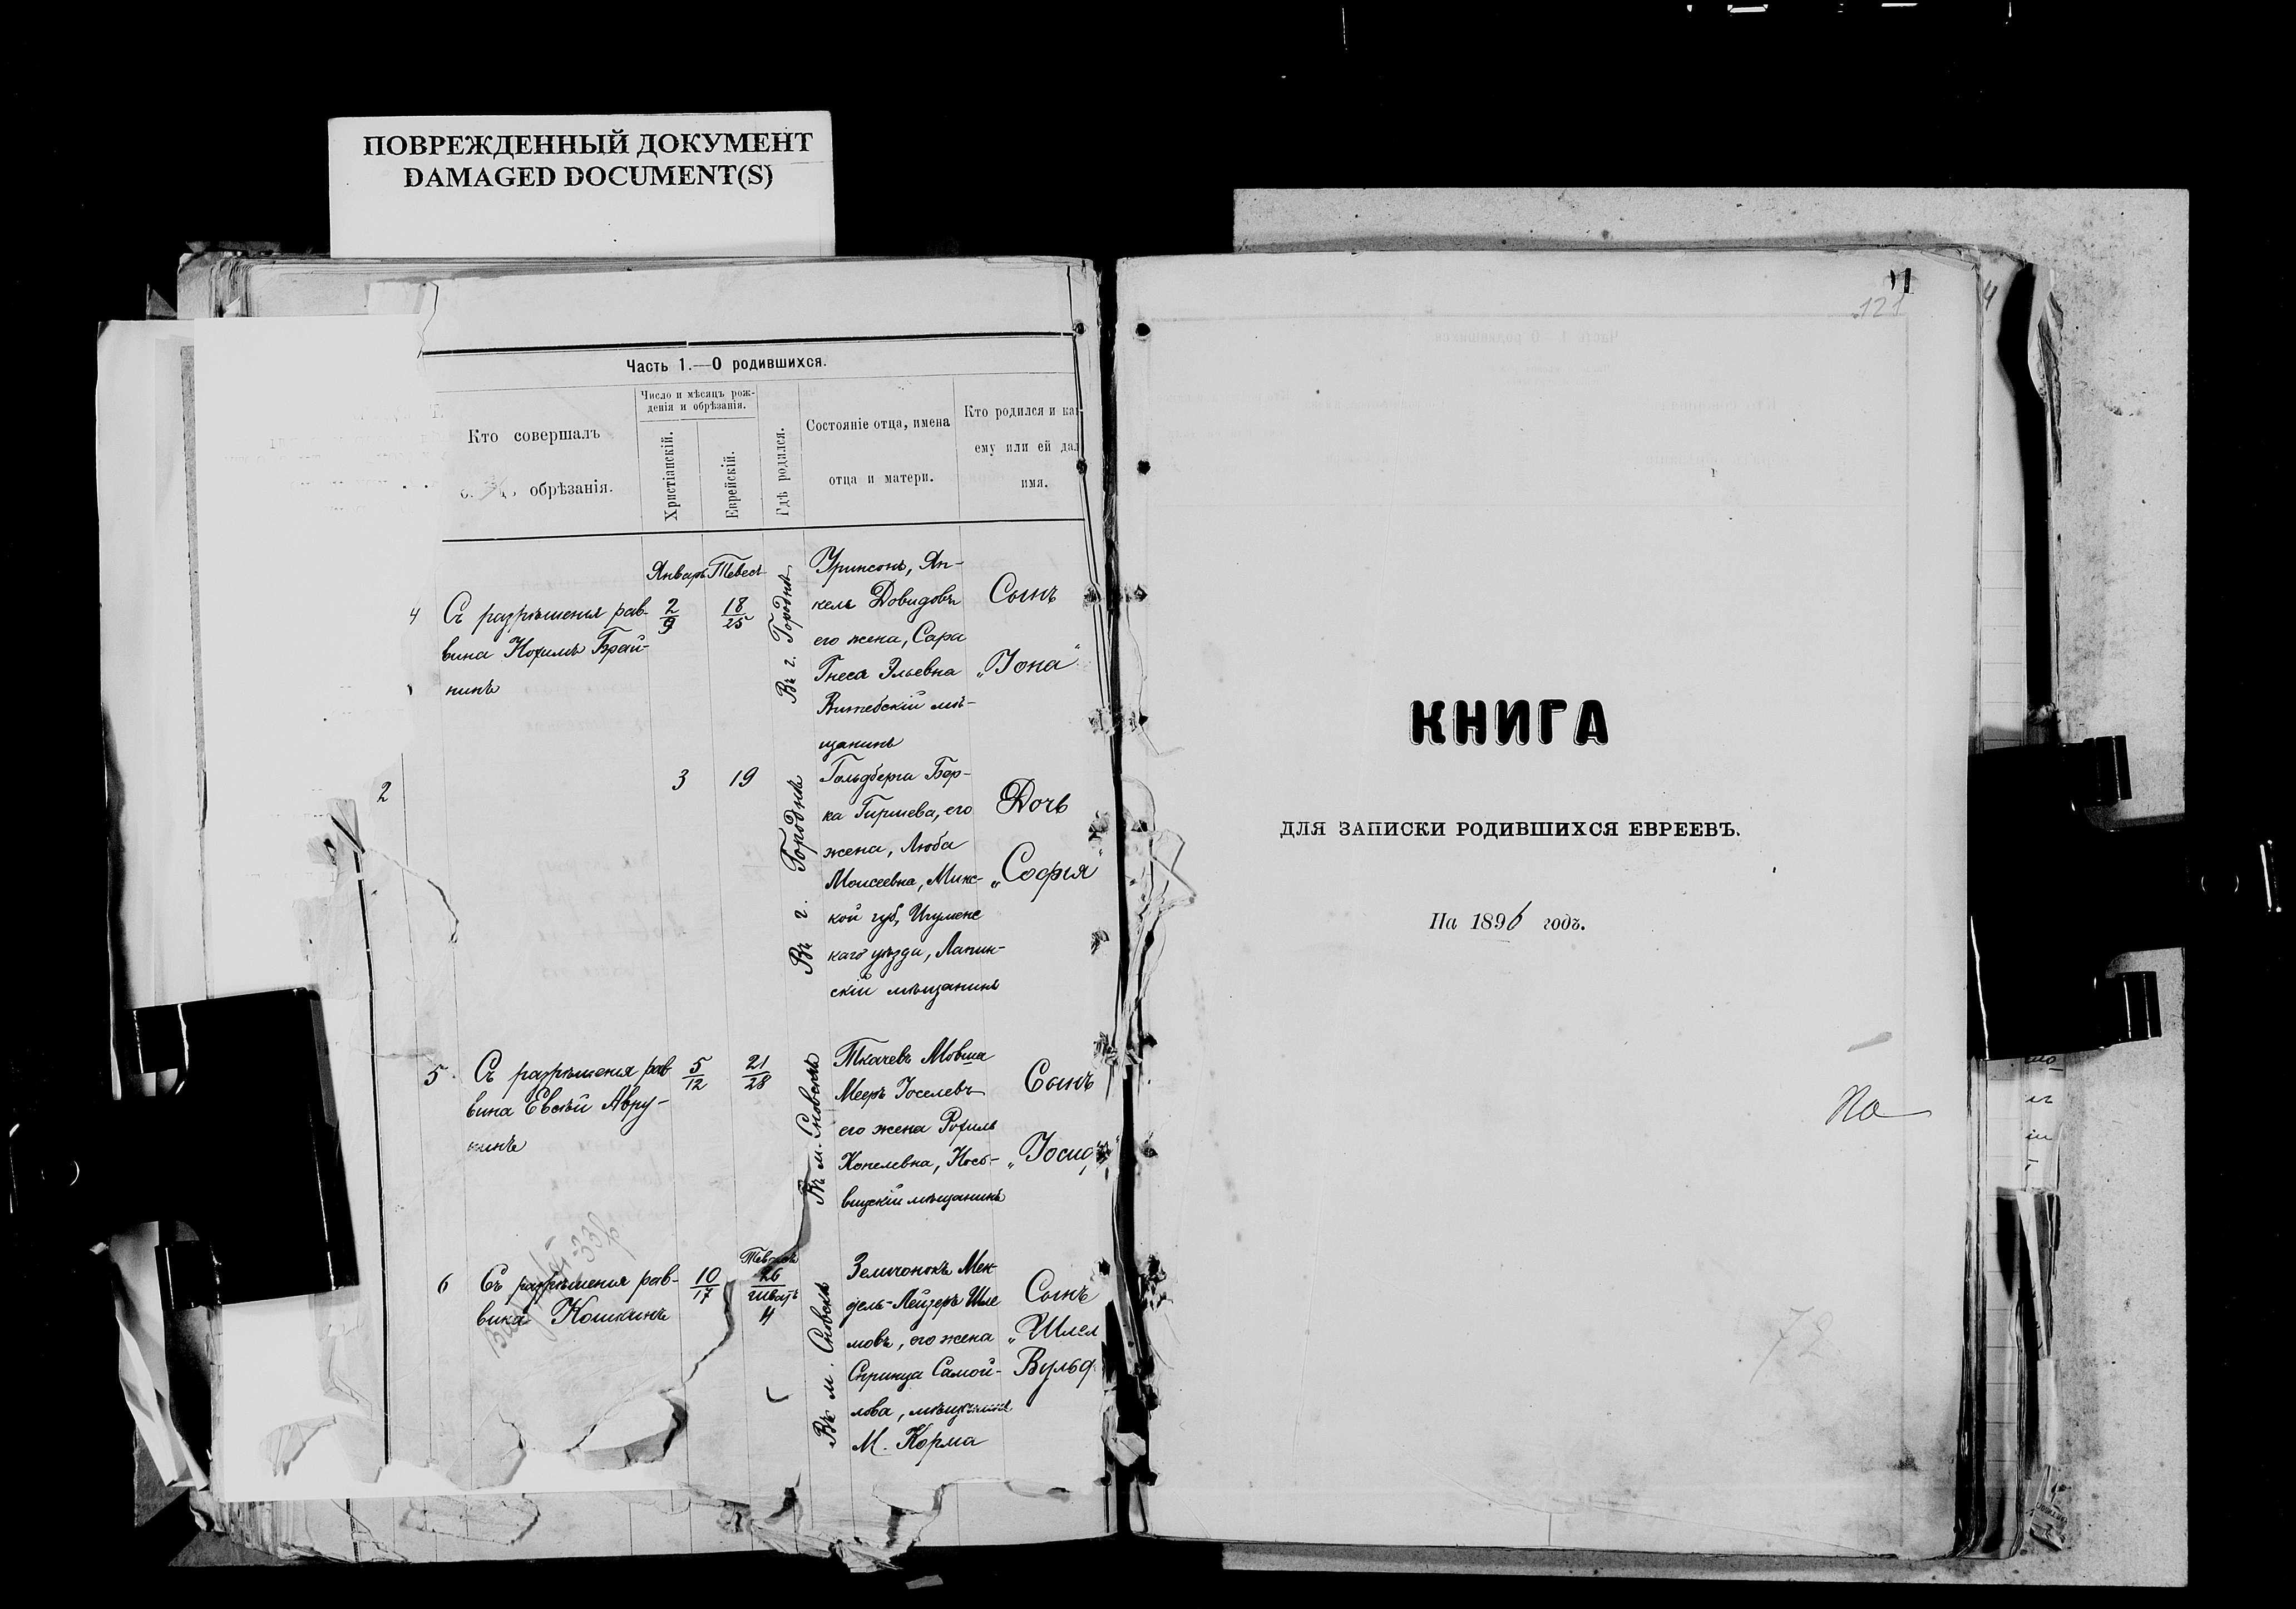 ПОВРЕЖДЕННЫЙ ДОКУМЕНТ
DAMAGED DOCUMENT(S)
Часть 1.—О родившихся.
Кто совершалъ
обрѣзанія.
Число и мѣсяцъ рож-
денія и обрѣзанія.
Христіанскій.
Еврейскій.
Гдѣ родился.
Состояніе отца, имена
отца и матери.
Кто родился и ка
ему или ей да
имя.
4
Съ разрѣшенія рав-
вина Нохимъ Брай-
нинъ
Январь
2
9
Тевесъ
18
25
Въ г. Городнѣ
Уринсонъ, Ян-
кель Довидовъ
его жена, Сара
Гнеся Эльевна
Витебскій мѣ-
щанинъ
Сынъ
„Іона"
2
3
19
Въ г. Городнѣ
Гольдбергъ Бор-
ка Гиршева, его
жена, Люба
Моисеевна, Минс-
кой губ, Игуменс
каго уѣзда, Лапин-
скій мѣщанинъ
Дочь
„Софія"
5
Съ разрѣшенія рав
вина Евсѣй Авру-
нинъ
5
12
21
28
Въ м. Сновскѣ
Ткачевъ Мовша
Мееръ Іоселевъ
его жена Рохиль
Копелевна, Носо-
вицкій мѣщанинъ
Сынъ
„Іосиф
6
Съ разрѣшенія рав-
вина Кошкинъ
10
17
26
Шватъ
4
Въ м. Сновскѣ
Земчонокъ Мен-
дель-Лейзеръ Шле
мовъ, его жена
Спринца Самой-
лова, мѣщанинъ
М. Корма
Сынъ
„Шлем
Вульф
121
КНИГА
ДЛЯ ЗАПИСКИ РОДИВШИХСЯ ЕВРЕЕВЪ.
На 1896 годъ.
На
72